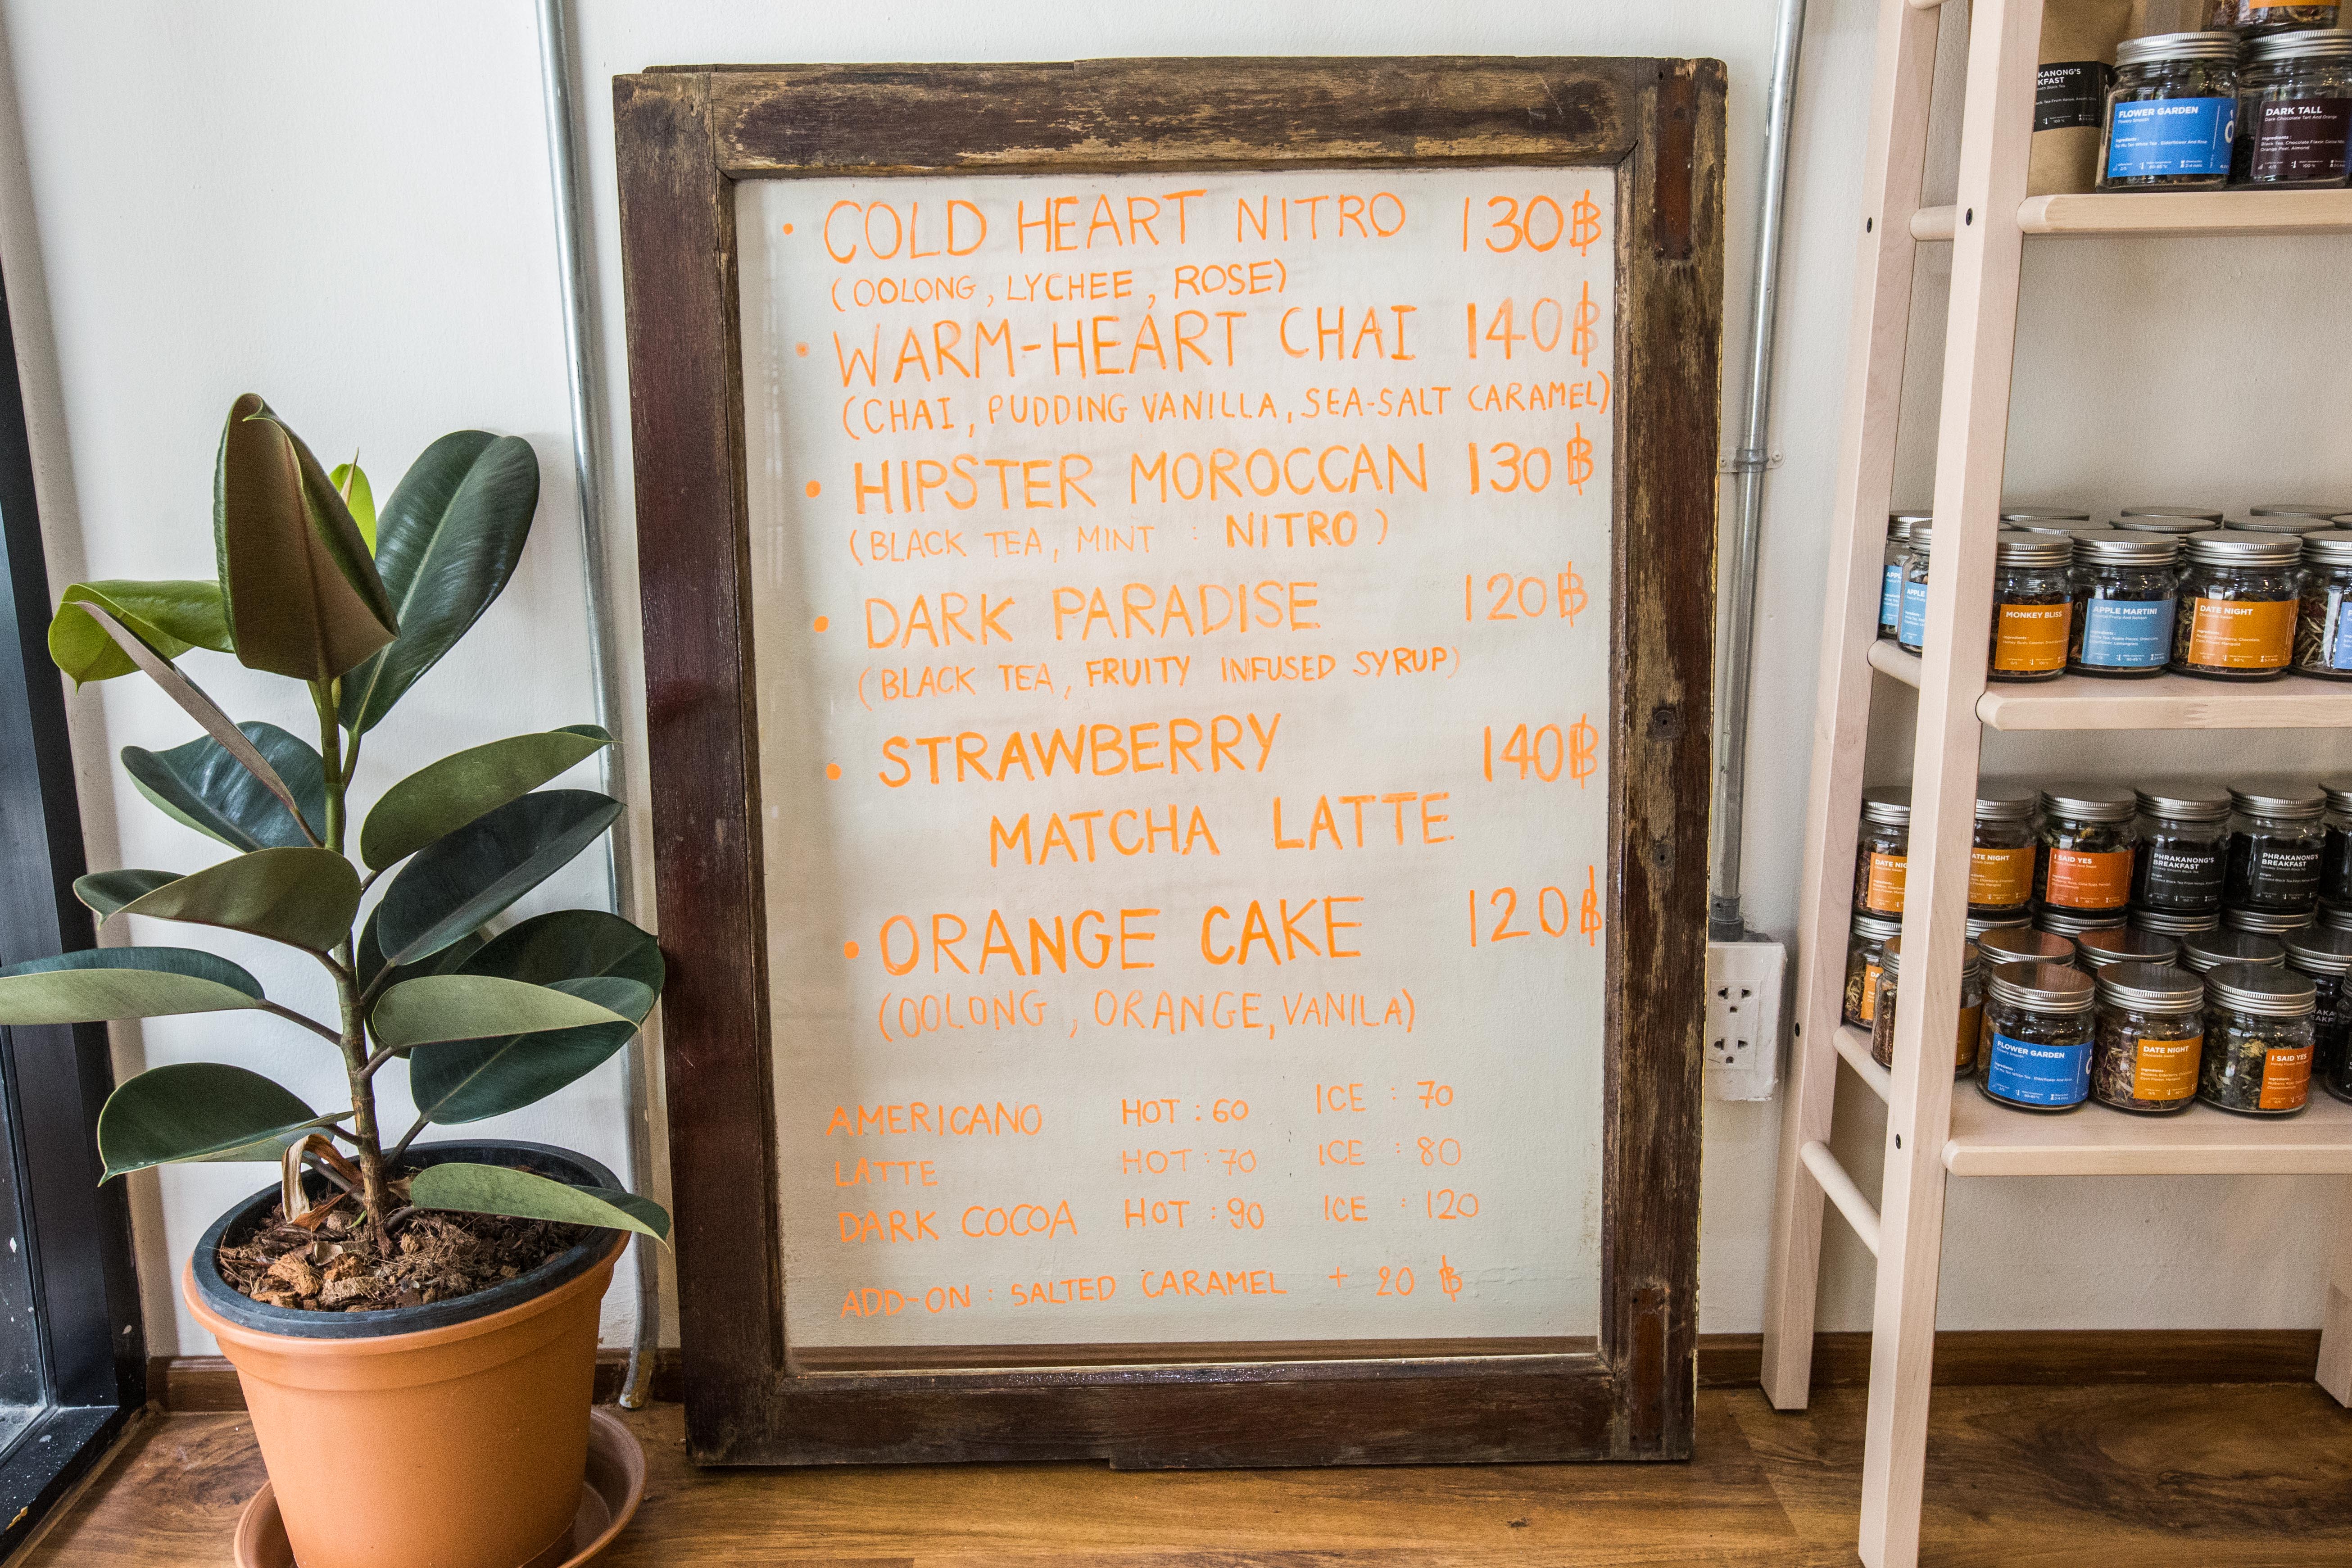 • COLD HEART NITRO 130฿
(OOLONG, LYCHEE, ROSE)
• WARM-HEART CHAI 140฿
(CHAI, PUDDING VANILLA, SEA-SALT CARAMEL)
• HIPSTER MOROCCAN 130฿
(BLACK TEA, MINT : NITRO)
• DARK PARADISE 120฿
(BLACK TEA, FRUITY INFUSED SYRUP)
• STRAWBERRY 140฿
MATCHA LATTE
• ORANGE CAKE 120฿
(OOLONG, ORANGE, VANILA)
AMERICANO HOT : 60 ICE : 70
LATTE HOT : 70 ICE : 80
DARK COCOA HOT : 90 ICE : 120
ADD-ON : SALTED CARAMEL + 20 ฿
FLOWER GARDEN
DARK TALL
MONKEY BLISS
APPLE MARTINI
DATE NIGHT
DATE NIGHT
I SAID YES
PHRAKANONG'S
BREAKFAST
PHRAKANONG'S
BREAKFAST
FLOWER GARDEN
DATE NIGHT
I SAID YES